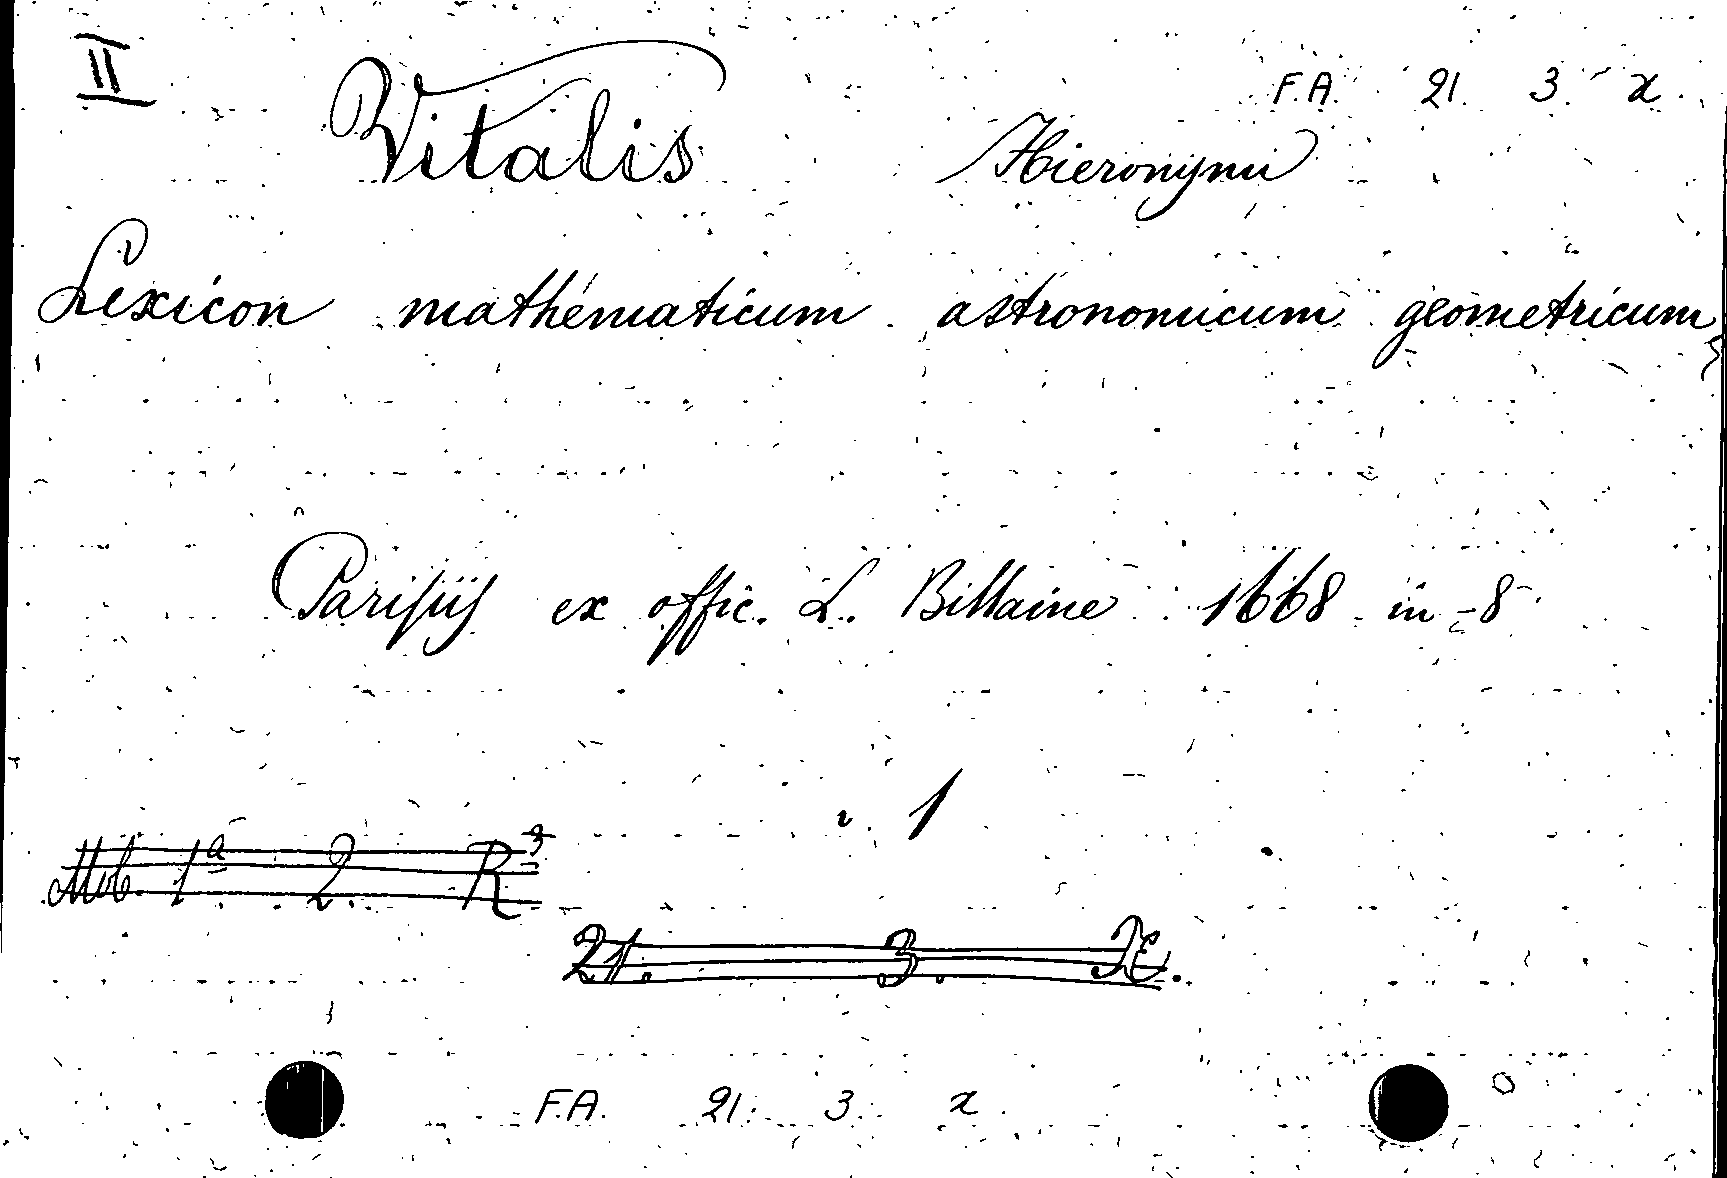 II
F.A. 21. 3. x
Vitalis Hieronymi
Lexicon mathematicum astronomicum geometricum
Parisiis ex offic. L. Billaine 1668 in-8
1
Mob. 1a 2. R3
21. 3.
F.A. 21. 3. x